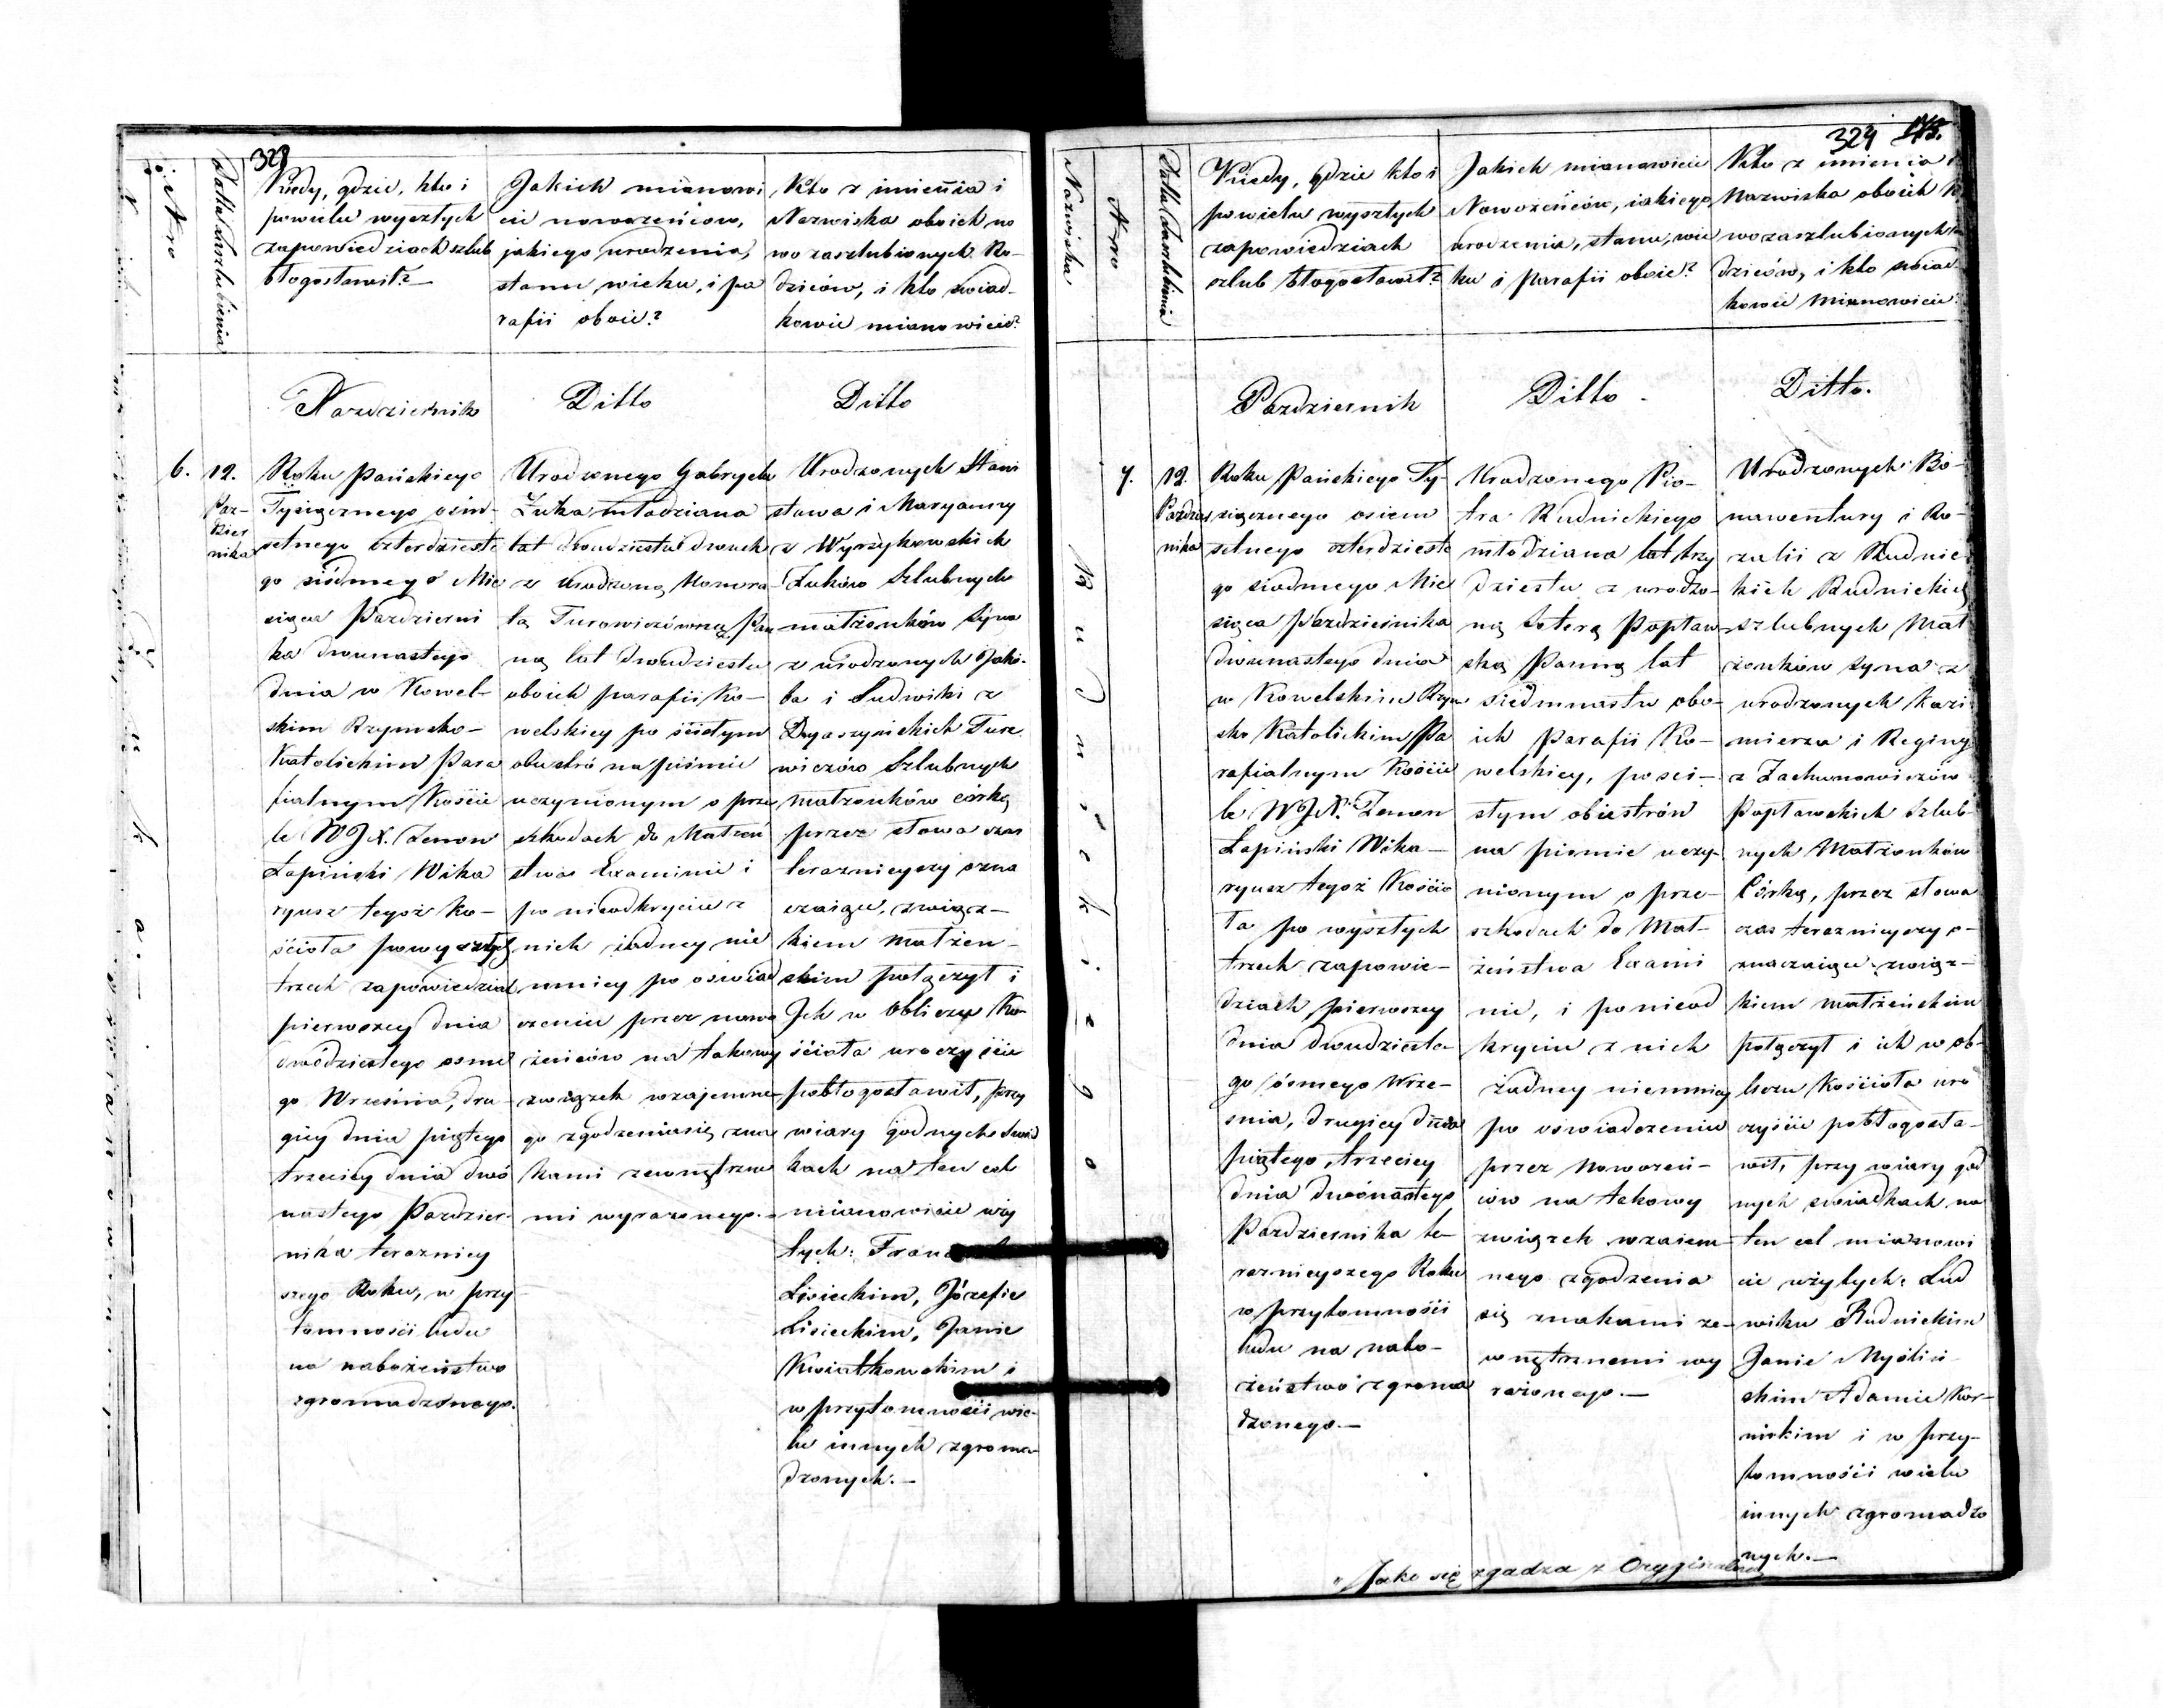 328
Nro
Datta Zaszlubienia
Kiedy, gdzie, kto i
powielu wyszłych
zapowiedziach szlub
błogosławił?—
Jakich mianowi
cie nowożeńców,
jakiego urodzenia,
stanu, wieku, i pa
rafii oboie?
Kto z imienia i
Nazwiska oboich no
wo zaszlubionych Ro-
dziców, i kto świad-
kowie mianowicie?
Pazdziernik
Ditto
Ditto
6.
12.
Paz-
dzier
nika
Roku Pańskiego
Tysiącznego ośm-
setnego czterdzieste
go siódmego Mie
siąca Pazdzierni
ka dwunastego
dnia w Kowel-
skim Rzymsko-
Katolickim Para
fialnym Koście
le WJX. Zenon
Łapiński Wika
ryusz tegoż Ko-
ścioła powyszłych
trzech zapowiedziach
pierwszey dnia
dwódziestego osme
go Września, dru
giey dnia piątego
trzeciey dnia dwó
nastego Pazdzier-
nika teraźniey
szego Roku, w przy
tomności ludu
na nabożeństwo
zgromadzonego.
Urodzonego Gabryela
Żuka młodziana
lat dwudziestu dwuch
z Urodzoną Honora
tą Turowiczówną Pan
ną lat dwudziestu
oboich parafii Ko-
welskiey po ścisłym
obustró na piśmie
uczynionym o prze
szkodach do Małżeń
stwa Examinie i
po nieodkryciu z
nich żadney nie
mniey po oświad
czeniu przez nowo
żeńców na takowy
związek wzajemne-
go zgodzeniasię zna
kami zewnętrzne
mi wyrażonego.-
Urodzonych Stani
sława i Maryanny
z Wyrzykowskich
Żuków Szlubnych
małżonków syna
z urodzonych Jakó-
ba i Ludwiki z
Turo
wiczów Szlubnych
małżonków córkę
przez słowa czas
teraznieyszy ozna
czaiące, związ-
kiem małżeń-
skim połączył i
Jch w obliczu Ko
ścioła uroczyście
pobłogosławił, przy
wiary godnych Swiad
kach na ten cel
mianowicie wży
tych:
Lisieckim, Józefie
Lisieckim, Janie
Kwiatkowskim i
w przytomności wie-
lu innych zgroma-
dzonych.—
324
Nazwiska
Nro
Datta Zaszlubienia
Kiedy, gdzie kto i
powielu wyszłych
zapowiedziach
szlub błogosławił?
Jakich mianowicie
Nowożeńców, iakiego
urodzenia, stanu, wie
ku i parafii oboie?
Kto z imienia i
Nazwiska oboich
wozaszlubionych
dziców, i kto świad
kowie mianowicie
Pazdziernik
Ditto
Ditto.
Rudnickiego
7.
12.
Pazdzier
nika
Roku Pańskiego Ty-
siącznego osiem
setnego czterdzieste
go siodmego Mie
siąca Pazdziernika
dwunastego dnia
w Kowelskim Rzym
sko Katolickim Pa
rafialnym Koście
le WJX. Zenon
Łapiński Wika-
ryusz tegoż Kościo
ła po wyszłych
trzech zapowie-
dziach, pierwszey
dnia dwudzieste-
go ósmego Wrze-
snia, drugiey dnia
piątego, trzeciey
dnia dwónastego
Pazdziernika te-
raznieyszego Roku
w przytomności
ludu na nabo-
żeństwo zgroma
dzonego.—
Urodzonego Pio-
tra Rudnickiego
młodziana lat trzy
dziestu z urodzo-
ną Soterą Popław-
ską Panną lat
siedmnastu obo-
ich Parafii Ko-
welskiey, po ści-
słym obustrón
na piśmie uczy-
nionym o prze-
szkodach do Mał-
żeństwa Exami
nie, i po nieod
kryciu z nich
żadney niemniey
po oświadczeniu
przez Nowożeń-
ców na takowy
związek wzaiem-
nego zgodzenia
się znakami ze-
wnętrznemi wy
rażonego.—
Urodzonych Bo-
nawentury i Ro-
zalii z Rudnic
kich Rudnickich
szlubnych Mał
żonków syna z
urodzonych Kazi
mierza i Reginy
z Jachimowiczów
Popławskich Szlub-
nych Małżonków
Córkę, przez słowa
czas teraznieyszy o-
znaczaiące związ-
kiem małżeńskim
połączył i ich w ob-
liczu Kościoła uro
czyście pobłogosła-
wił, przy wiary god
nych świadkach na
ten cel mianowi
cie wżytych: Lud
wiku Rudnickim
Janie Myśliń-
skim Adamie Kor-
nickim i w przy-
tomności wielu
innych zgromadzo
nych.—
Jako się zgadza z Oryginałem